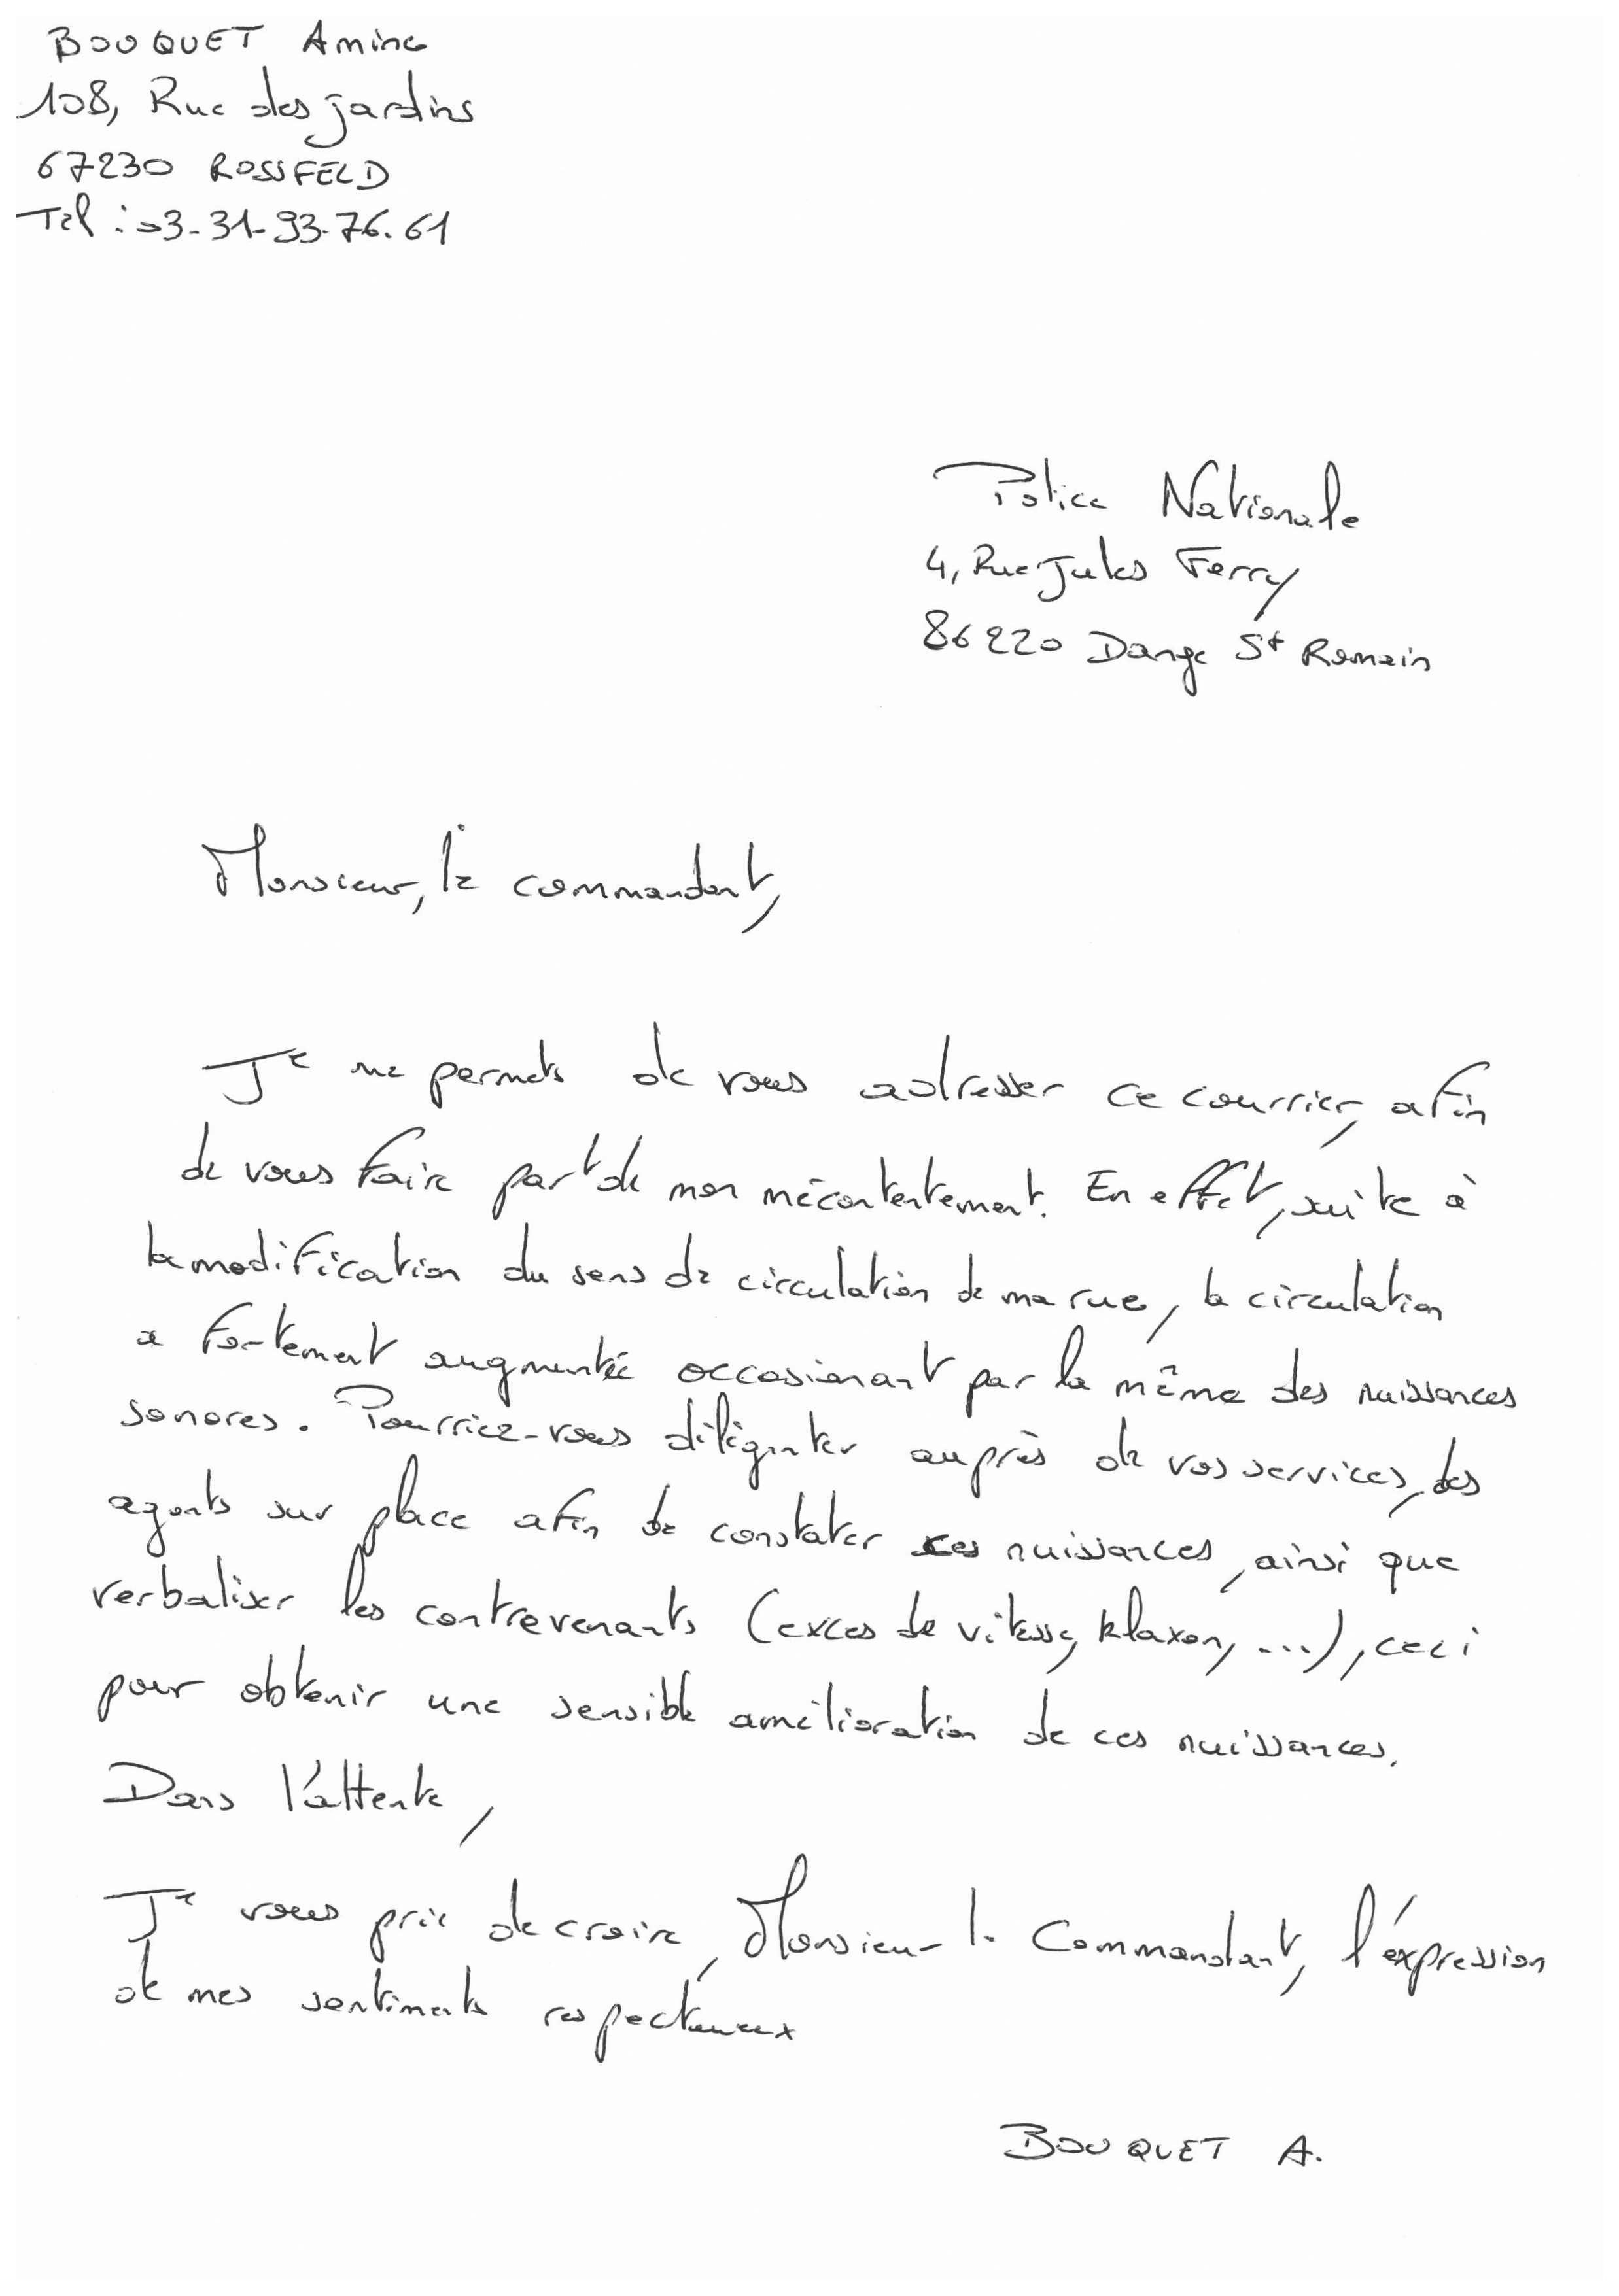 BOUQUET Amine
108, Rue des jardins
67230 ROSSFELD
Tel : 03-31-93-76.61
Police Nationale
4, Rue Jules Ferry
86220 Dange St Romain
Monsieur, le commandant,
Je me permets de vous adresser ce courrier, afin
de vous faire part de mon mécontentement. En effet, suite à
la modification du sens de circulation de ma rue, la circulation
a fortement augmentée occasionant par la même des nuissances
sonores. Pourriez-vous diligenter auprès de vos services, des
agents sur place afin de constater ces nuissances, ainsi que
verbaliser les contrevenants (exces de vitesse, klaxon, ...), ceci
pour obtenir une sensible amélioration de ces nuissances.
Dans l'attente,
Je vous prie de croire, Monsieur le Commandant, l'éxpression
de mes sentiments respectueux
BOUQUET A.